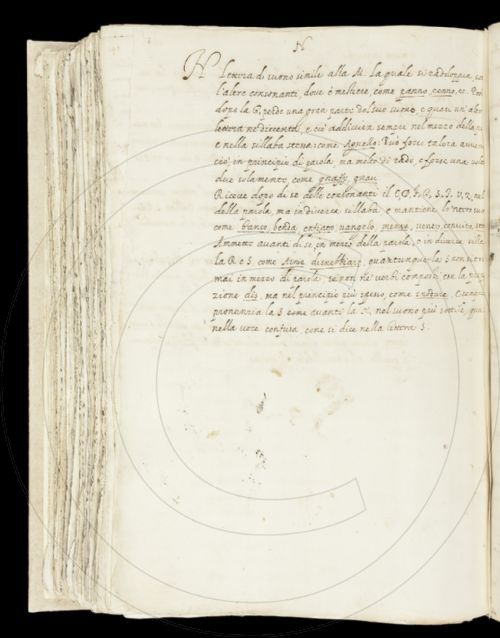 N
N Lettera di suono simile alla M. la quale si raddoppia, co
l'altre consonanti, dove è mestiere, come panno, cenno, ec. Pos
dopo la G, perde una gran parte del suo suono e quasi un' altr
lettera ne diventa, e ciò addivien sempre nel mezzo della
e nella sillaba stessa: come Agnello: Può forse talora avven
ciò in principio di parola ma molto di rado, e forse una vol
due solamente, come gnaffe, gnau.
Riceve dopo di se delle consonanti il C, D, F, G, S, T, V, Z, nel
della parola, ma in diversa sillaba, e mantiene lo 'ntero suo
come banco, benda, enfiato, vangelo, mense, vento, convito,
Ammette avanti di se in mezzo della parola, e in diversa sill
la R e S come Arno, disnebbiare, quantunque la S non si tr
mai in mezzo di parola, se non ne' verbi composti con la prep
zione dis, ma nel principio più spesso, come snodare. E con
pronunzia la S come avanti la M, nel suono più sottile, qua
nella voce confusa, come si dice nella lettera S.